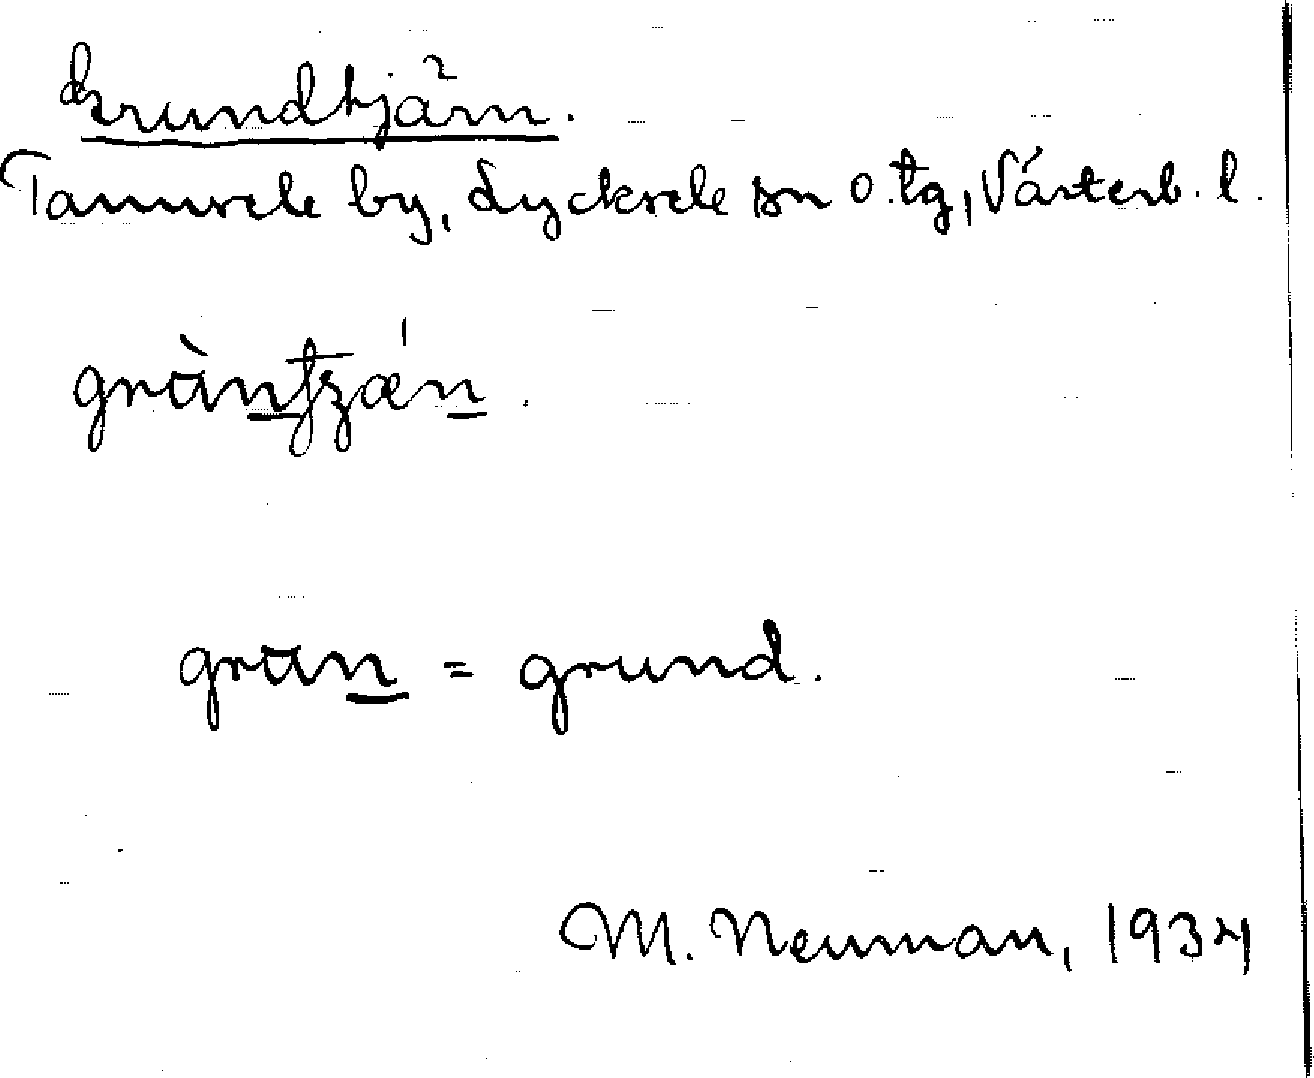 Grundtjärn.
Tannsele by, Lycksele sn o. tg, Västerb. l.
grùnʃʒǽn.
grun = grund.
M. Neuman, 1934